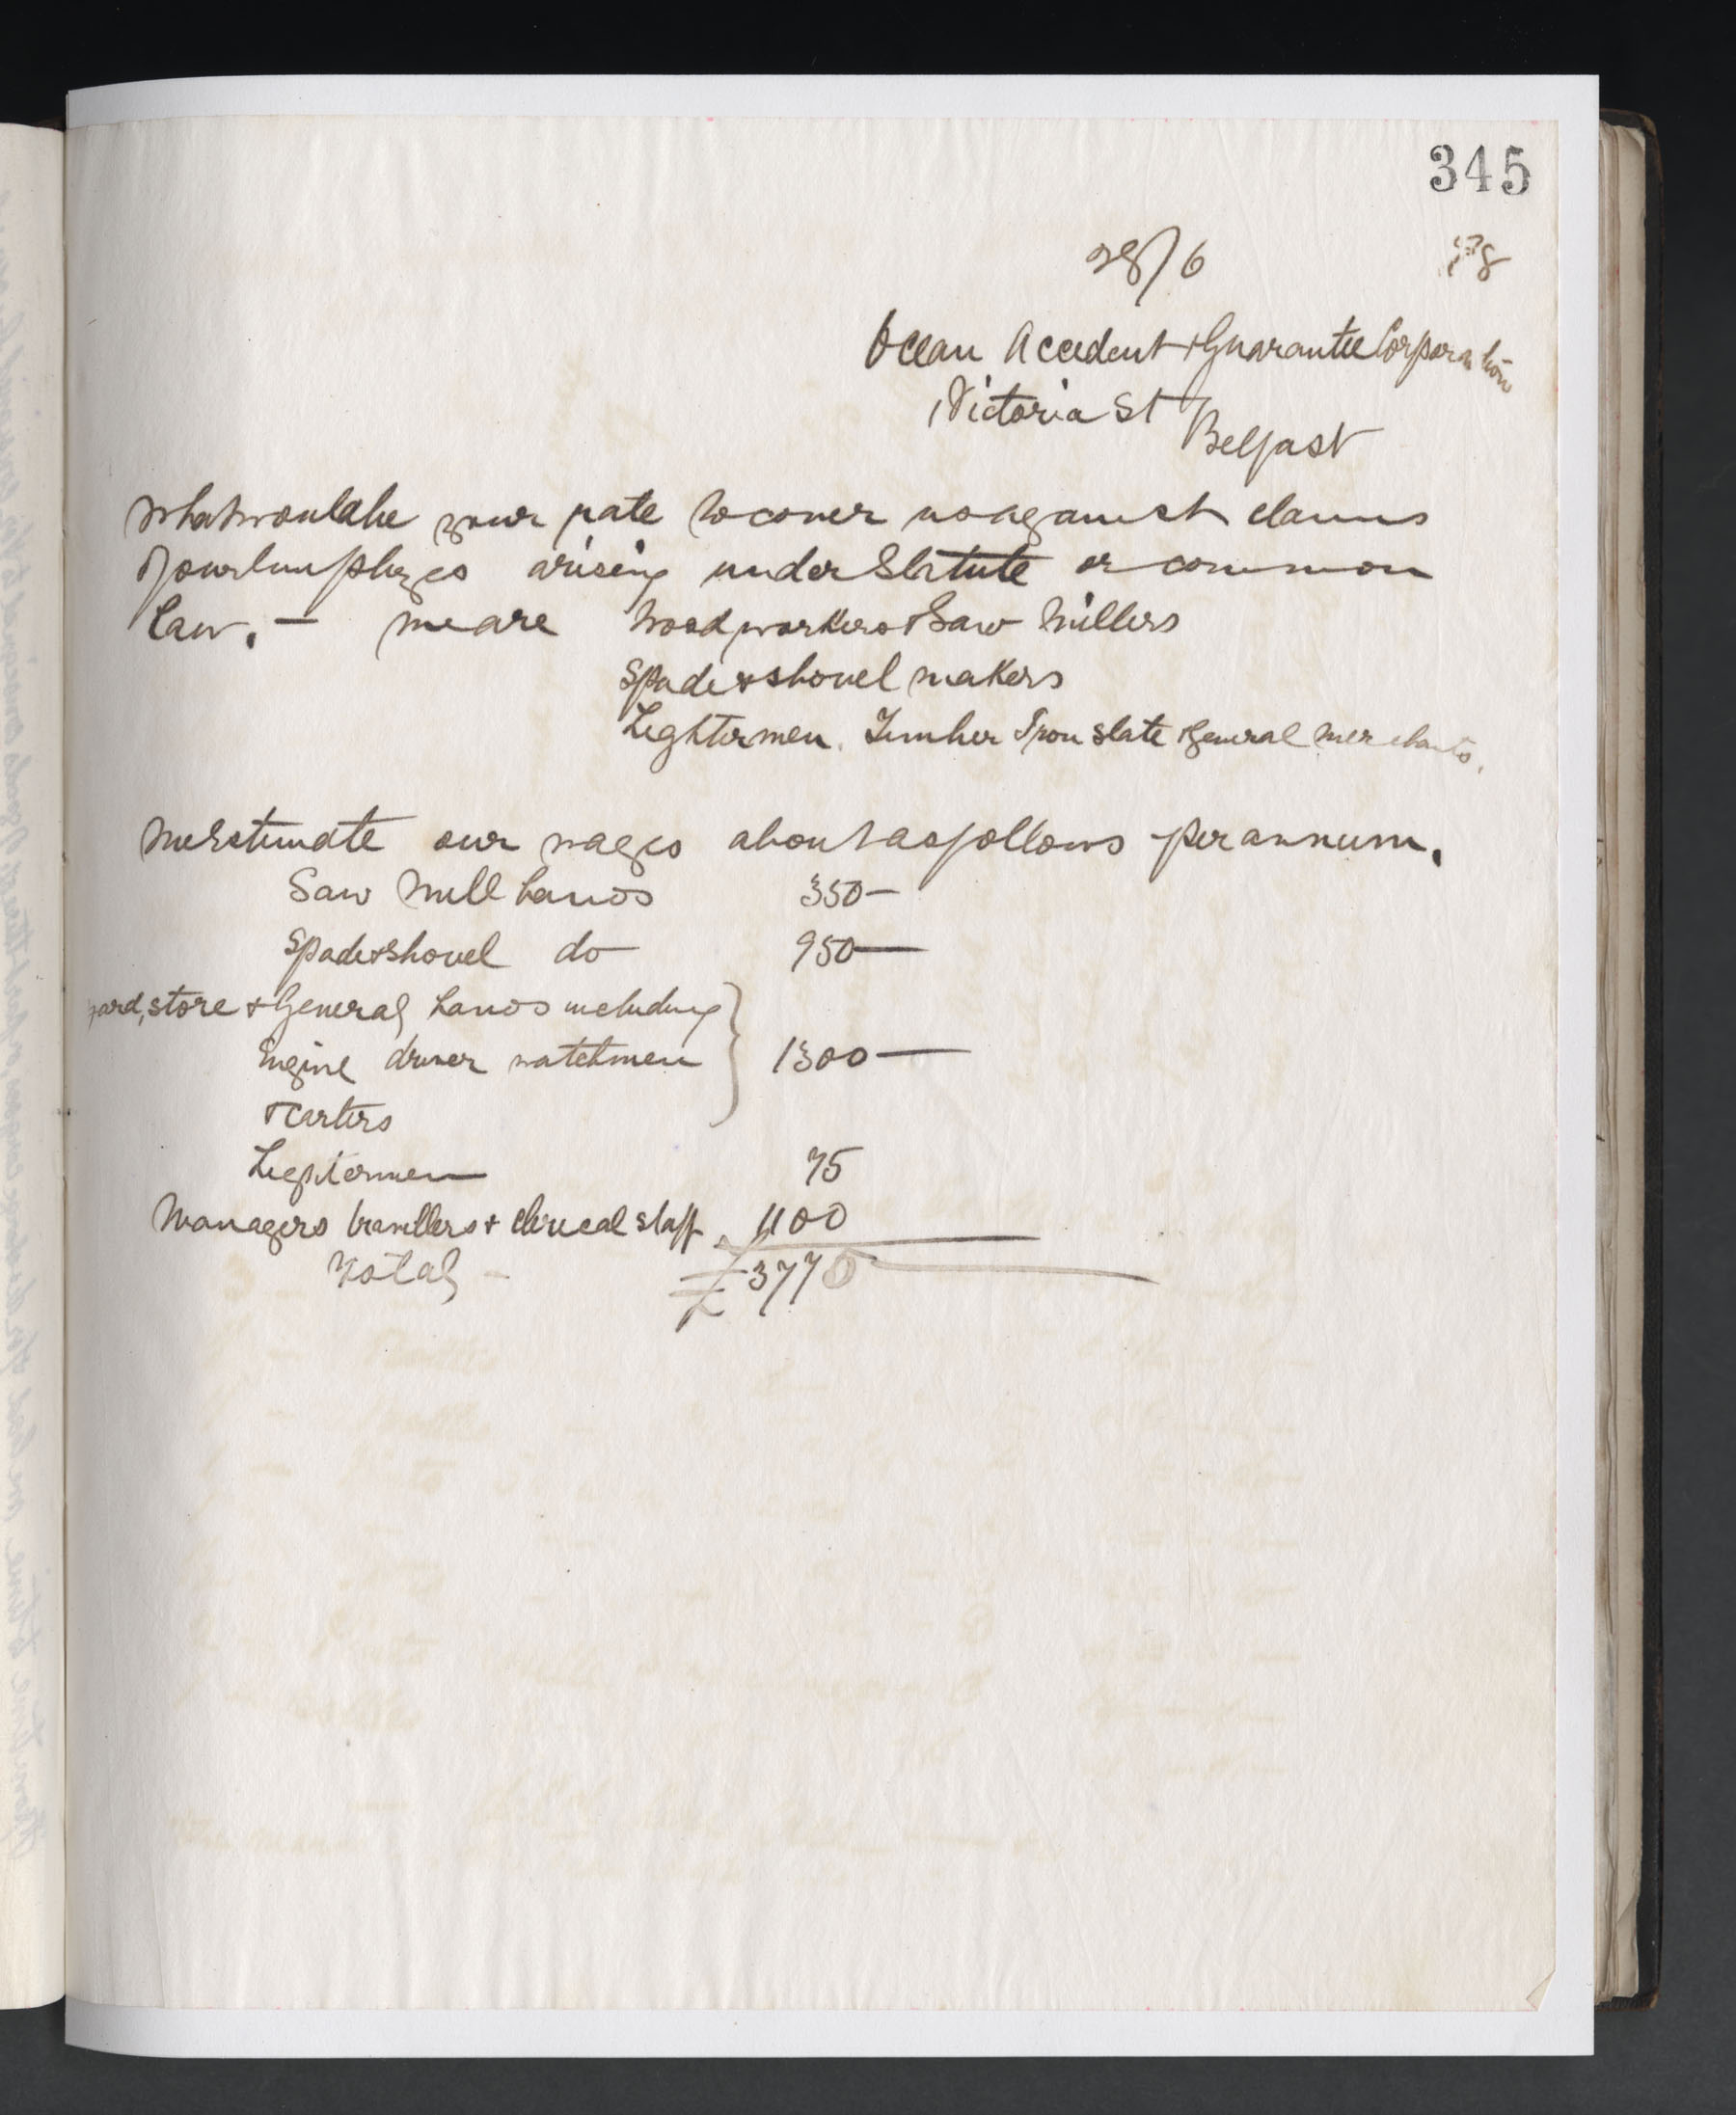 345
28/6 98
Ocean Accident & Guarantee Corporation
Victoria St
Belfast
What would be your rate to cover us against claims
of our employees arising under Statute or common
Law. — we are Wood workers & Saw Millers
Spade & shovel makers
Lightermen. Timber Iron Slate & General Merchants.
We Estimate our wages about as follows per annum.
Saw Mill hands 350—
Spade & Shovel do 950—
yard, store & General hands including
Engine driver watchmen 1300—
& Carters
Lightermen 75
Managers travellers & clerical staff 1100
Total — £3775